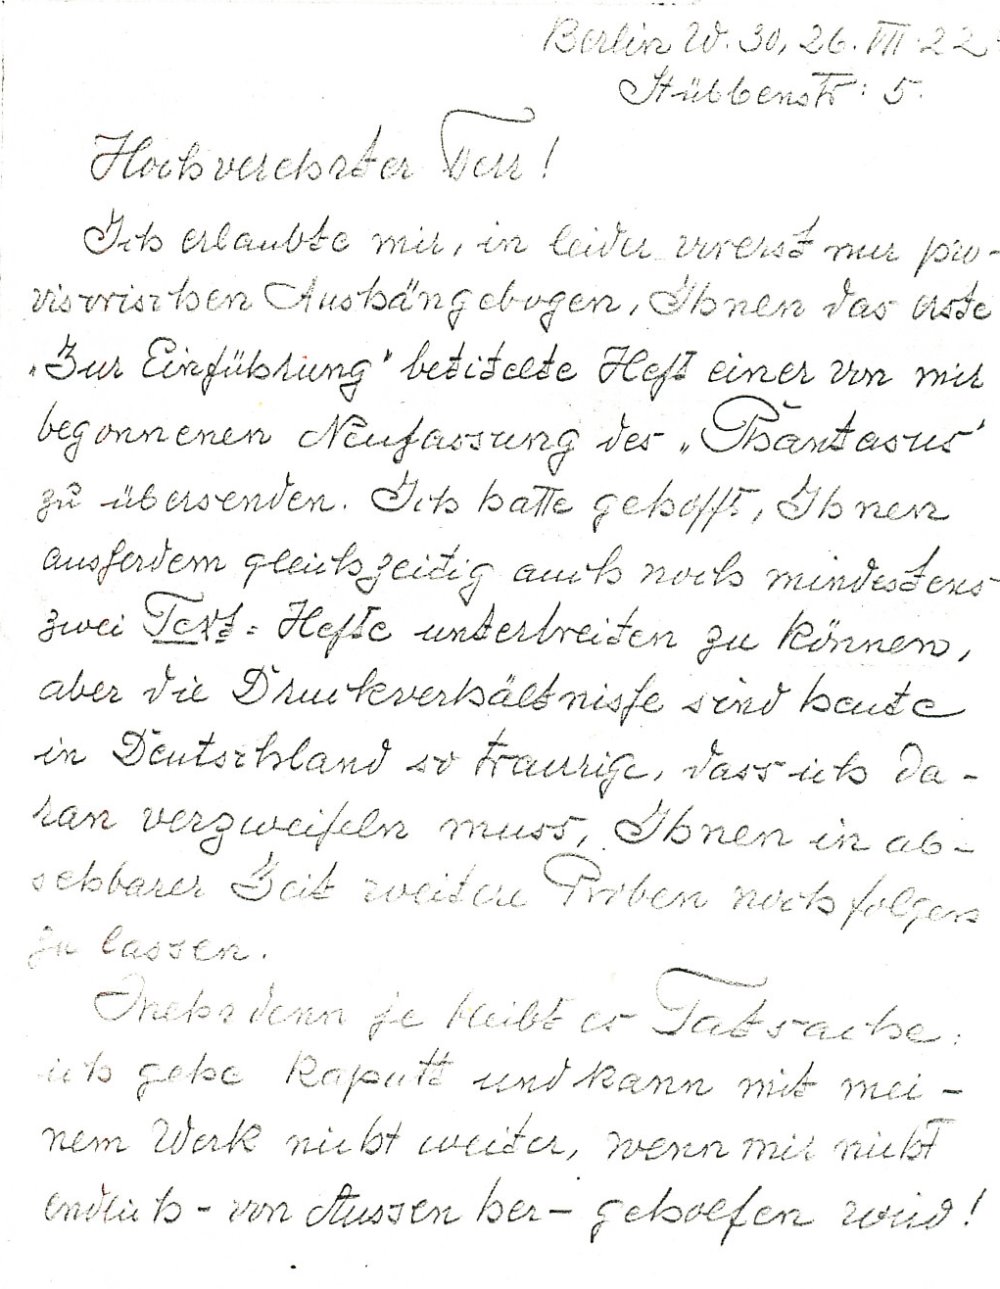 Berlin W. 30, 26. VII. 22.
Stübbenstr: 5.
Hochverehrter Herr!
Ich erlaubte mir, in leider vorerst nur pro-
visorischen Aushängebogen, Ihnen das erste
„Zur Einführung" betitelte Heft einer von mir
begonnenen Neufassung des „Phantasus"
zu übersenden. Ich hatte gehofft, Ihnen
ausserdem gleichzeitig auch noch mindestens
zwei Text-Hefte unterbreiten zu können,
aber die Druckverhältnisse sind heute
in Deutschland so traurige, dass ich da-
ran verzweifeln muss, Ihnen in ab-
sehbarer Zeit weitere Proben noch folgen
zu lassen.
Mehr denn je bleibt es Tatsache:
ich gehe kaputt und kann mit mei-
nem Werk nicht weiter, wenn mir nicht
endlich - von Aussen her - geholfen wird!